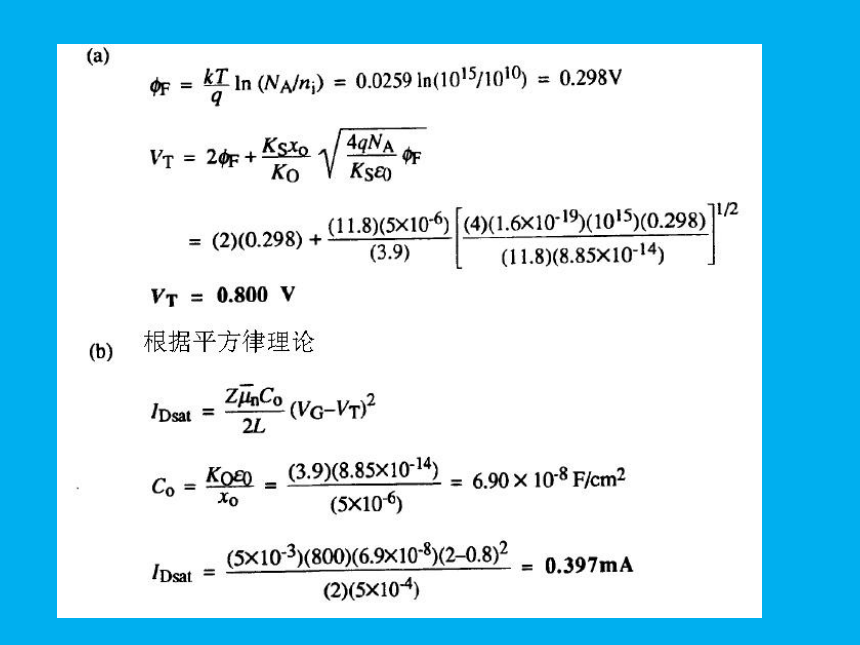 (a)
ϕF = kT/q ln (NA/ni) = 0.0259 ln(10^15/10^10) = 0.298V
VT = 2ϕF + KSxo/KO √(4qNA/KSε0 ϕF)
= (2)(0.298) + (11.8)(5×10^-6)/(3.9) [(4)(1.6×10^-19)(10^15)(0.298)/(11.8)(8.85×10^-14)]^1/2
VT = 0.800 V
(b) 根据平方律理论
IDsat = Zμ̄nCo/2L (VG–VT)^2
Co = KOε0/xo = (3.9)(8.85×10^-14)/(5×10^-6) = 6.90 × 10^-8 F/cm^2
IDsat = (5×10^-3)(800)(6.9×10^-8)(2–0.8)^2/(2)(5×10^-4) = 0.397mA